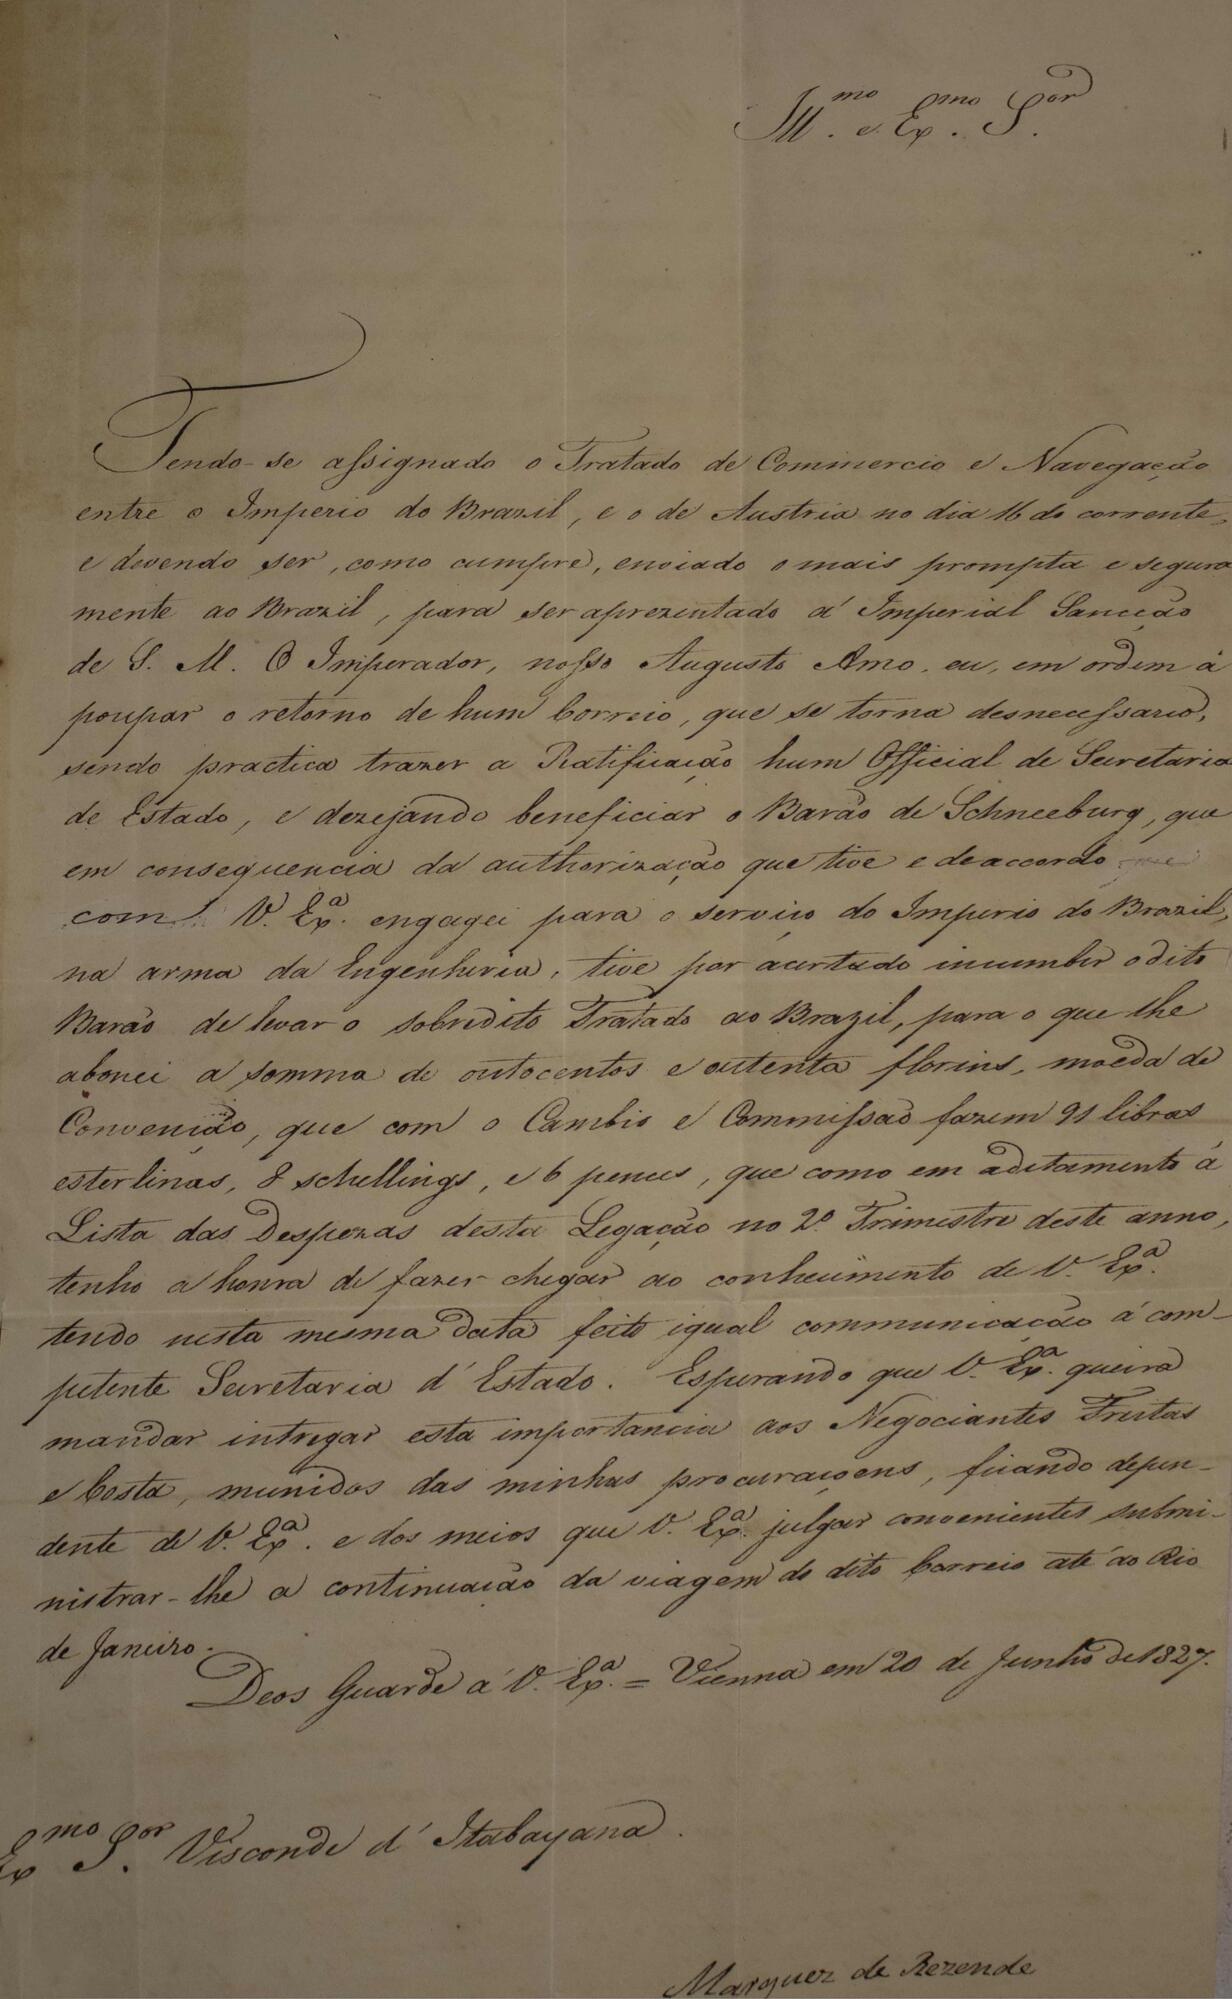 Ill.mo e Ex.mo S.or
Tendo-se assignado o Tratado de Commercio e Navegação
entre o Imperio do Brazil, e o de Austria no dia 16 do corrente,
e devendo ser, como cumpre, enviado o mais prompta e segura
mente ao Brazil, para ser aprezentado á Imperial Sancção
de S. M. O Imperador, nosso Augusto Amo, eu, em ordem á
poupar o retorno de hum Correio, que se torna desnecessario,
sendo practica trazer a Ratificação hum Official de Secretaria
de Estado, e dezejando beneficiar o Barão de Schneeburg, que
em consequencia da authorização que tive e de accordo
com V. Ex.a engagei para o serviço do Imperio do Brazil,
na arma da Engenheria, tive por acertado incumbir o dito
Barão de levar o sobredito Tratado ao Brazil, para o que lhe
abonei a somma de outocentos e outenta florins, moeda de
Convenção, que com o Cambio e Commissão fazem 91 libras
esterlinas, 8 schellings, e 6 pences, que como em aditamento á
Lista das Despezas desta Legação no 2º Trimestre deste anno,
tenho a honra de fazer chegar ao conhecimento de V. Ex.a
tendo nesta mesma data feito igual communicação á com-
petente Secretaria d'Estado. Esperando que V. Ex.a queira
mandar intregar esta importancia aos Negociantes Freitas
e Costa, munidos das minhas procuraçoens, ficando depen-
dente de V. Ex.a e dos meios que V. Ex.a julgar convenientes submi-
nistrar-lhe a continuação da viagem do dito Correio até ao Rio
de Janeiro.
Deos Guarde á V. Ex.a = Vienna em 20 de Junho de 1827.
Ex.mo S.or Visconde d'Itabayana.
Marquez de Rezende